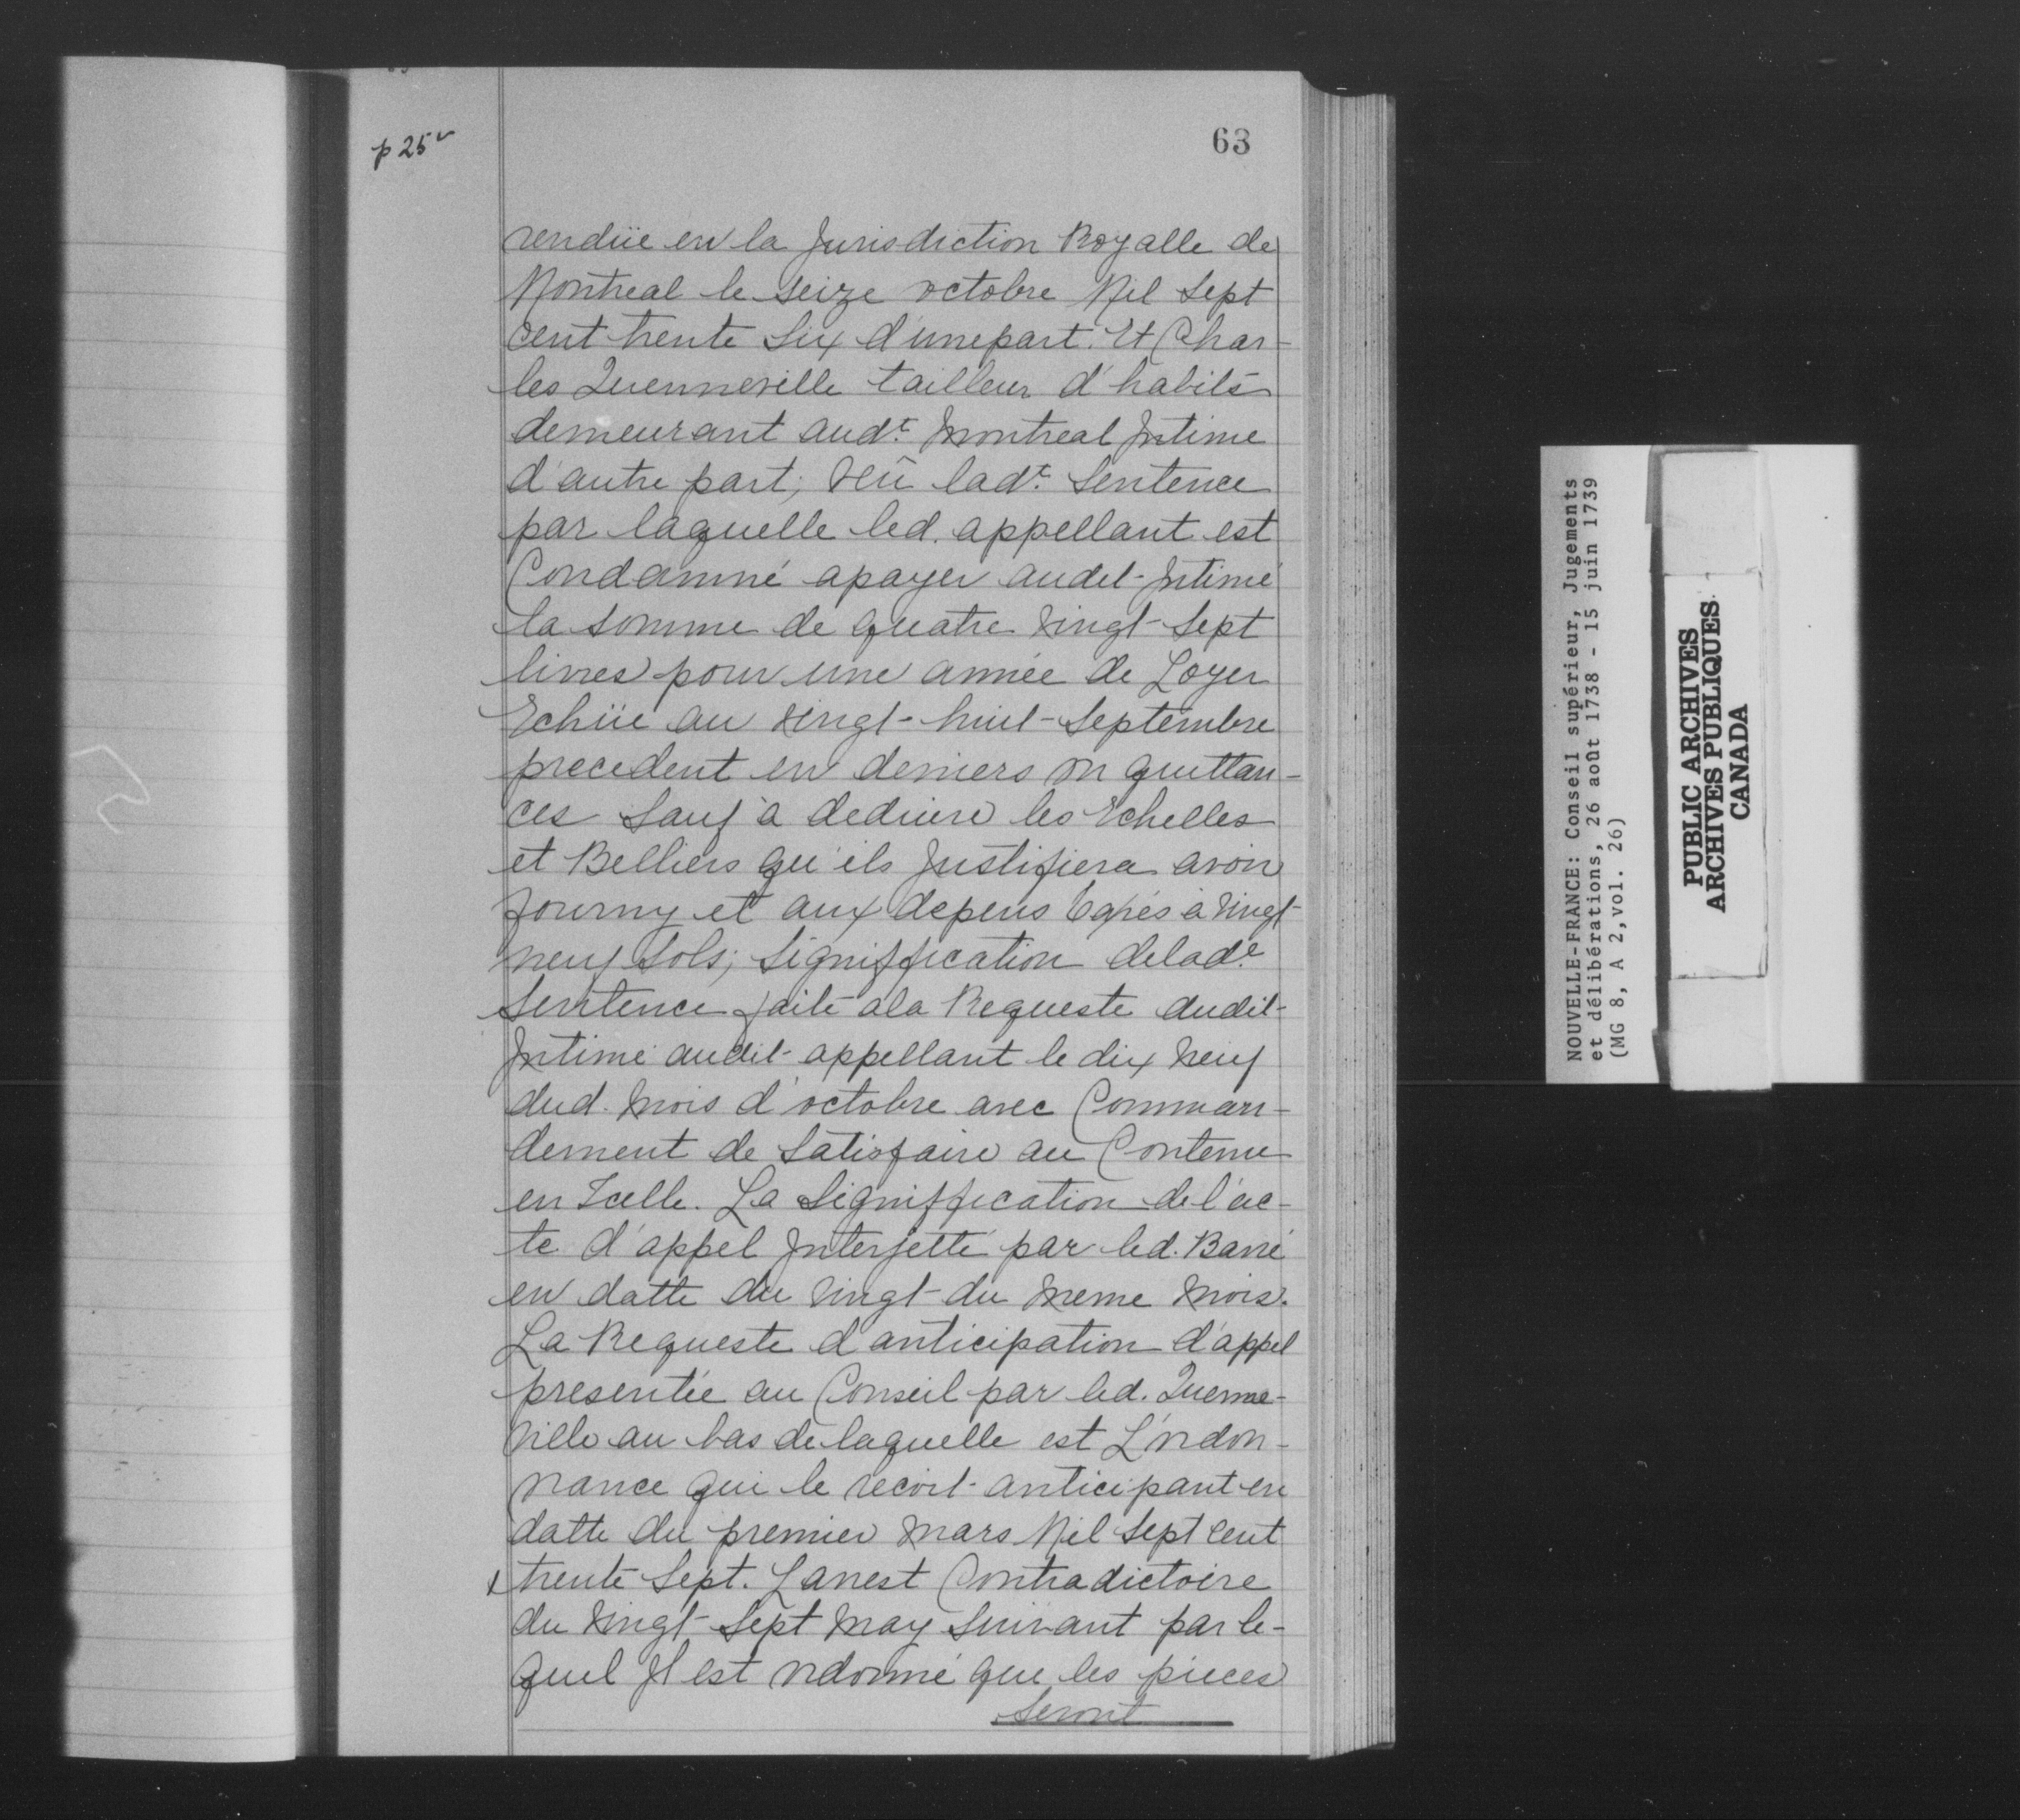 p 25v
63
rendüe en la Jurisdiction Royalle de
Montreal le seize octobre Mil sept
cent trente six d'unepart. Et Char-
les Quenneville tailleur d'habits
demeurant audt. Montreal Intime
d'autre part; Veû ladt. Sentence
par laquelle led. appellant est
Condamné apayer audit Intimé
la somme de quatre vingt sept
livres pour une année de Loyer
Echüe au vingt-huit Septembre
precedent en deniers ou quittan-
ces sauf à deduire les Echelles
et Belliers qu'ils Justifiera avoir
fourny et aux depens taxés à vingt
neuf Sols; Signiffication delade.
Sentence faite ala Requeste dudit
Intimé audit appellant le dix neuf
dud. Mois d'octobre avec Comman-
dement de Satisfaire au Contenu
en Icelle. La Signiffication de l'ac-
te d'appel Interjetté par led. Barré
en datte du vingt du meme mois.
La Requeste d'anticipation d'appel
presentée au Conseil par led. Quenne-
ville au bas de laquelle est L'ordon-
nance qui le recoit anticipant en
datte du premier Mars Mil sept cent
trente Sept. Larrest Contradictoire
du vingt sept May Suivant par le-
quel Il est ordonné que les pieces
Seront
NOUVELLE-FRANCE: Conseil supérieur, Jugements
et délibérations, 26 août 1738 - 15 juin 1739
(MG 8, A 2, vol. 26)
PUBLIC ARCHIVES
ARCHIVES PUBLIQUES
CANADA